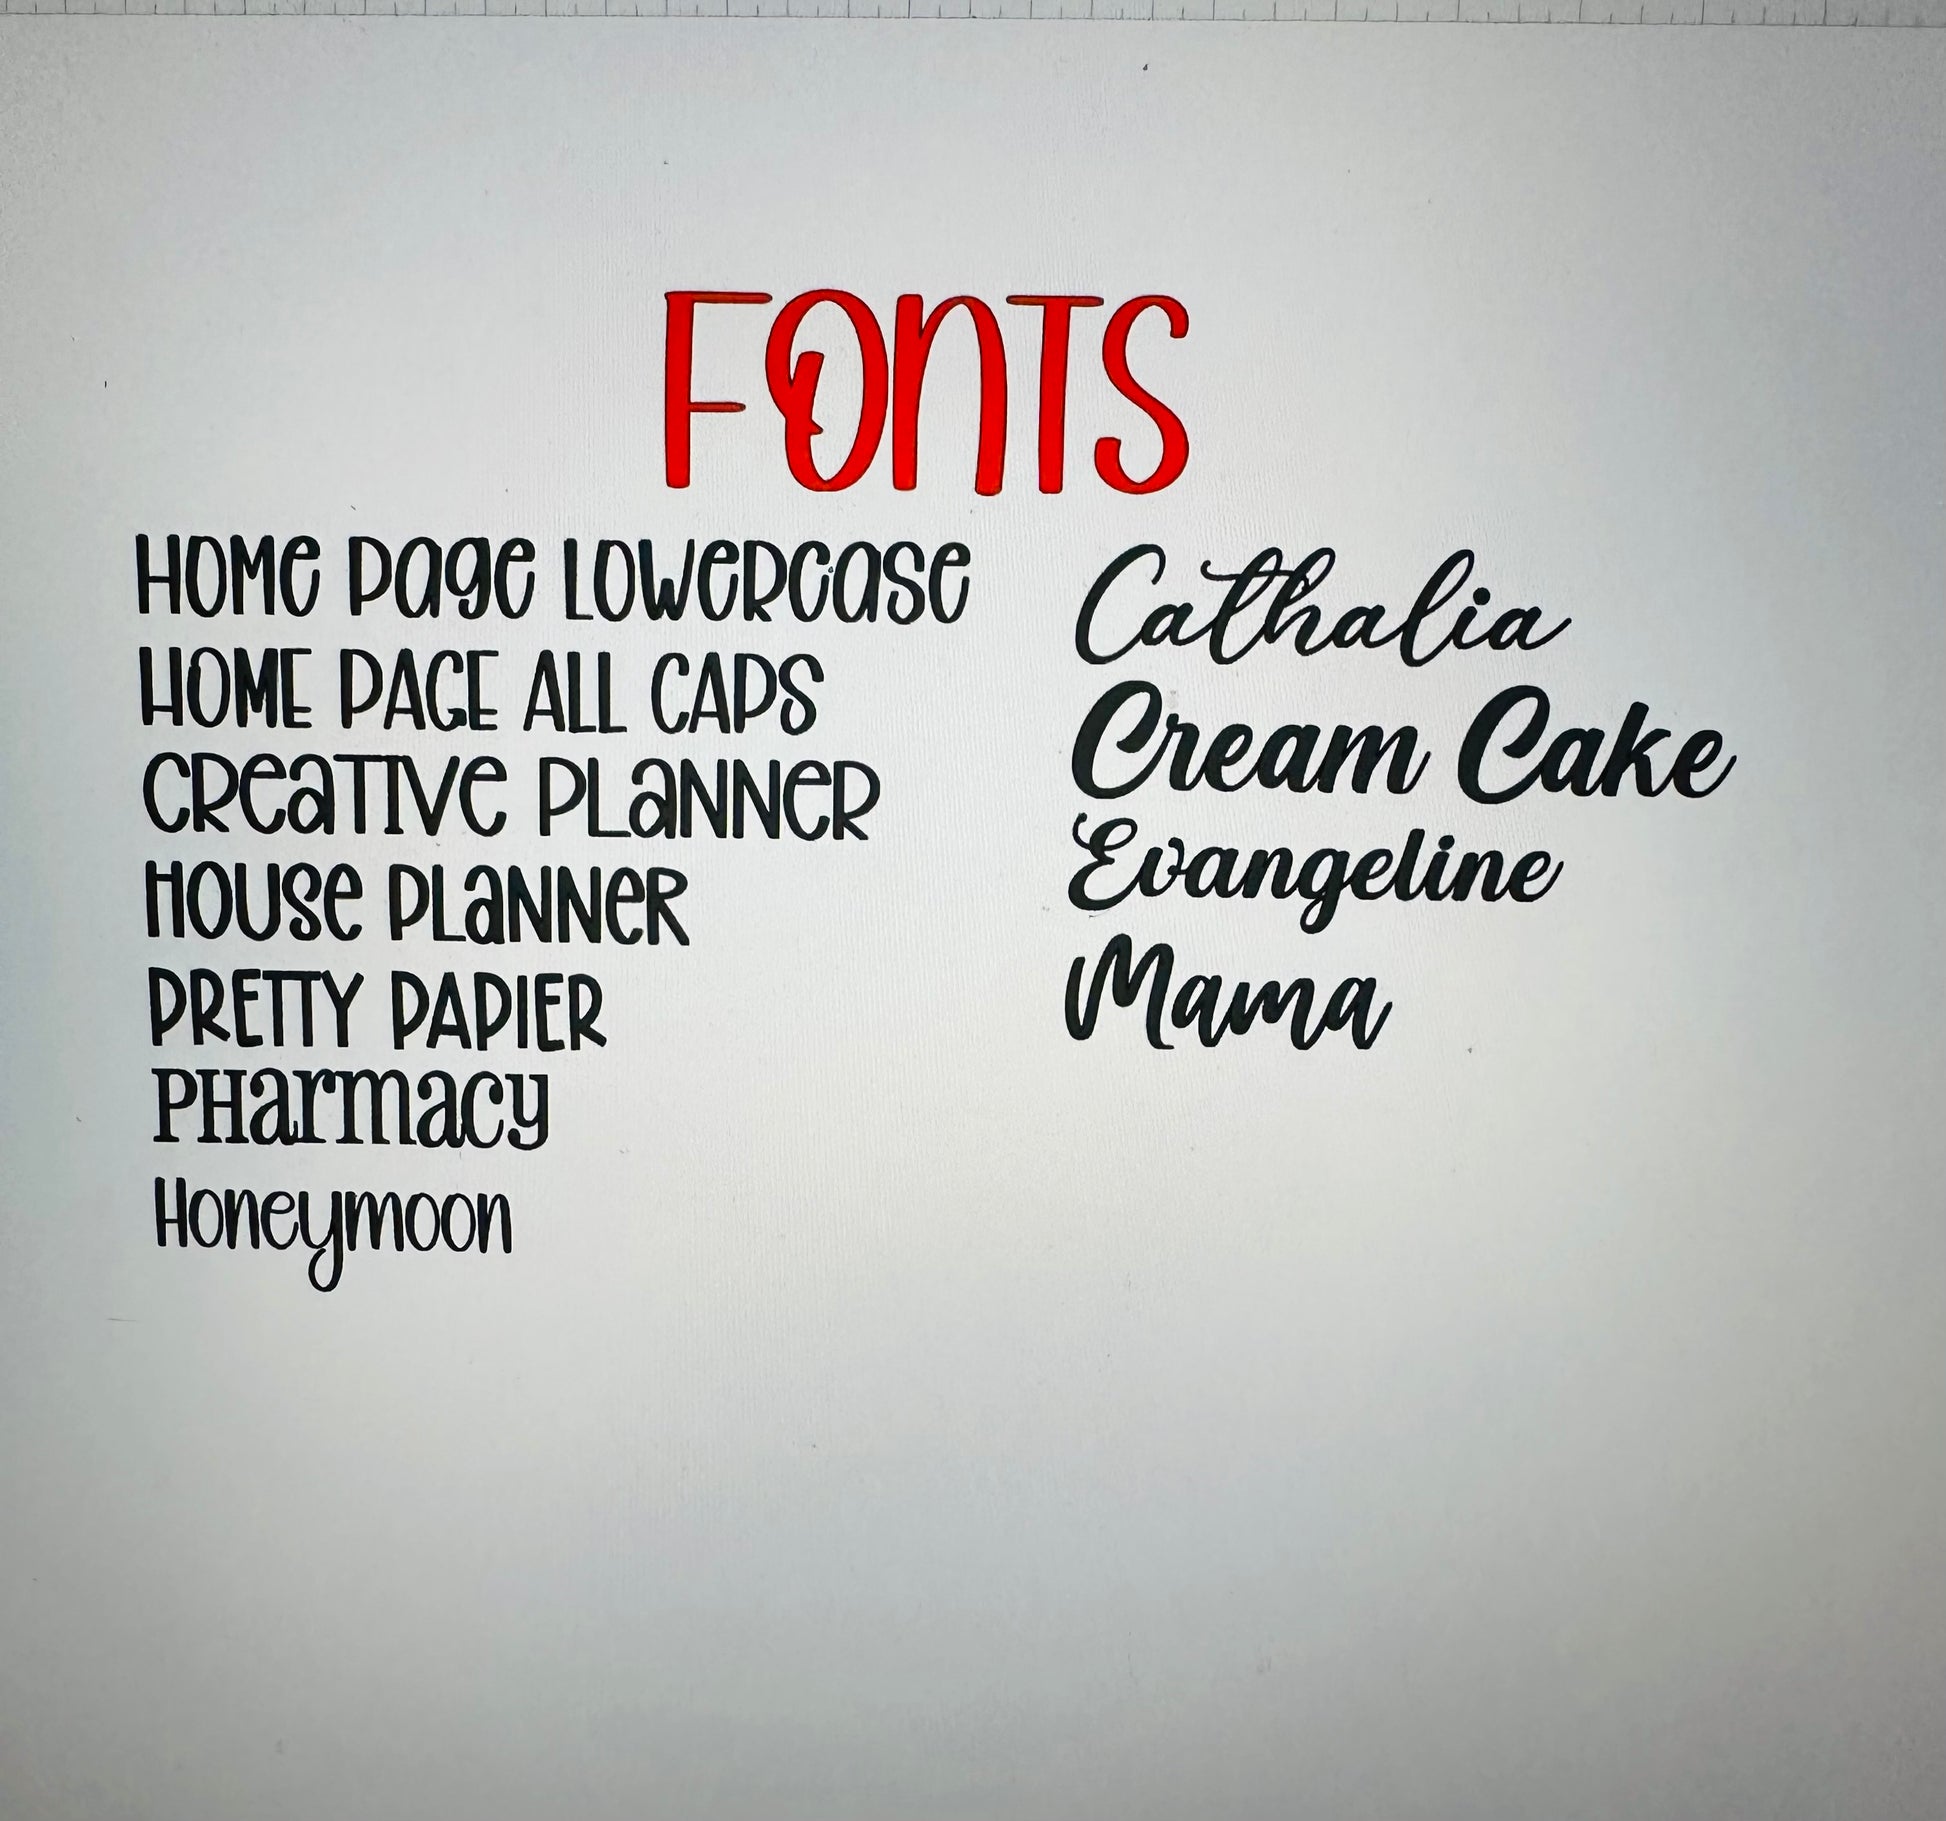 FONTS
HOME PAGE LOWERCASE
HOME PAGE ALL CAPS
CREATIVE PLANNER
HOUSE PLANNER
PRETTY PAPIER
PHarmacy
Honeymoon
Cathalia
Cream Cake
Evangeline
Mama